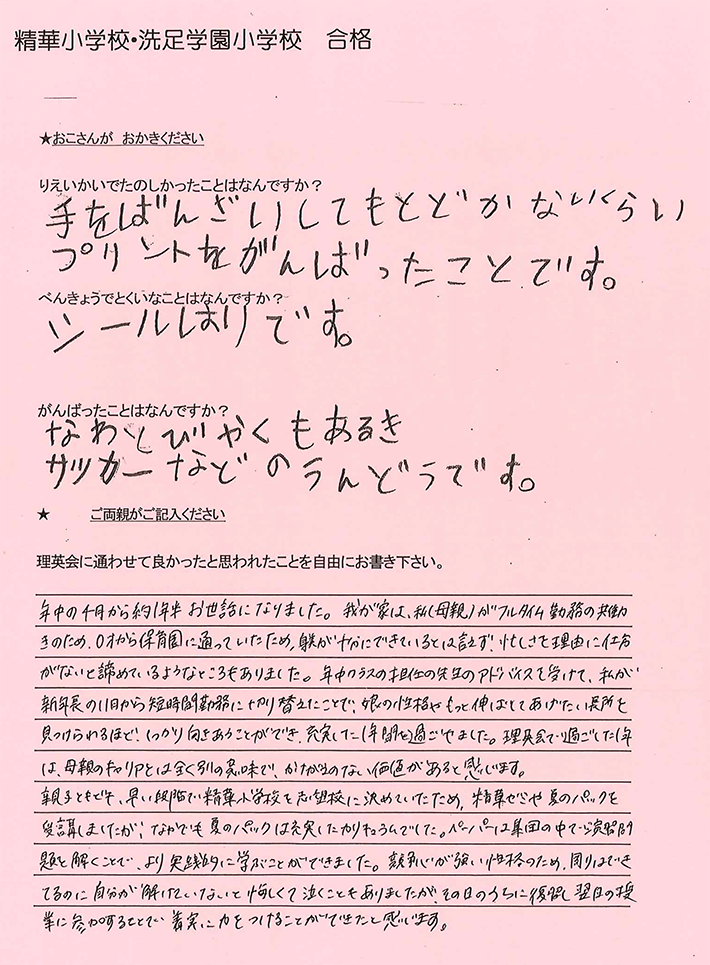 精華小学校・洗足学園小学校　合格
★おこさんが　おかきください
りえいかいでたのしかったことはなんですか？
手をばんざいしてもとどかないくらい
プリントをがんばったことです。
べんきょうでとくいなことはなんですか？
シールはりです。
がんばったことはなんですか？
なわとびやくもあるき
サッカーなどのうんどうです。
★　ご両親がご記入ください
理英会に通わせて良かったと思われたことを自由にお書き下さい。
年中の4月から約1年半お世話になりました。我が家は、私(母親)がフルタイム勤務の共働
きのため、0才から保育園に通っていたため、躾が十分にできているとは言えず、忙しさを理由に仕方
がないと諦めているようなところもありました。年中クラスの担任の先生のアドバイスを受けて、私が
新年長の11月から短時間勤務に切り替えたことで、娘の性格やもっと伸ばしてあげたい長所を
見つけられるほど、しっかり向きあうことができ、充実した1年間を過ごせました。理英会で過ごした1年
は、母親のキャリアとは全く別の意味で、かけがえのない価値があると感じます。
親子ともども、早い段階で精華小学校を志望校に決めていたため、精華ゼミや夏のパックを
受講しましたが、なかでも夏のパックは充実したカリキュラムでした。ペーパーは集団の中で演習問
題を解くことで、より実践的に学ぶことができました。競争心が強い性格のため、周りはでき
てるのに自分が解けていないと悔しくて泣くこともありましたが、その日のうちに復習し翌日の授
業に参加することで、着実に力をつけることができたと思います。